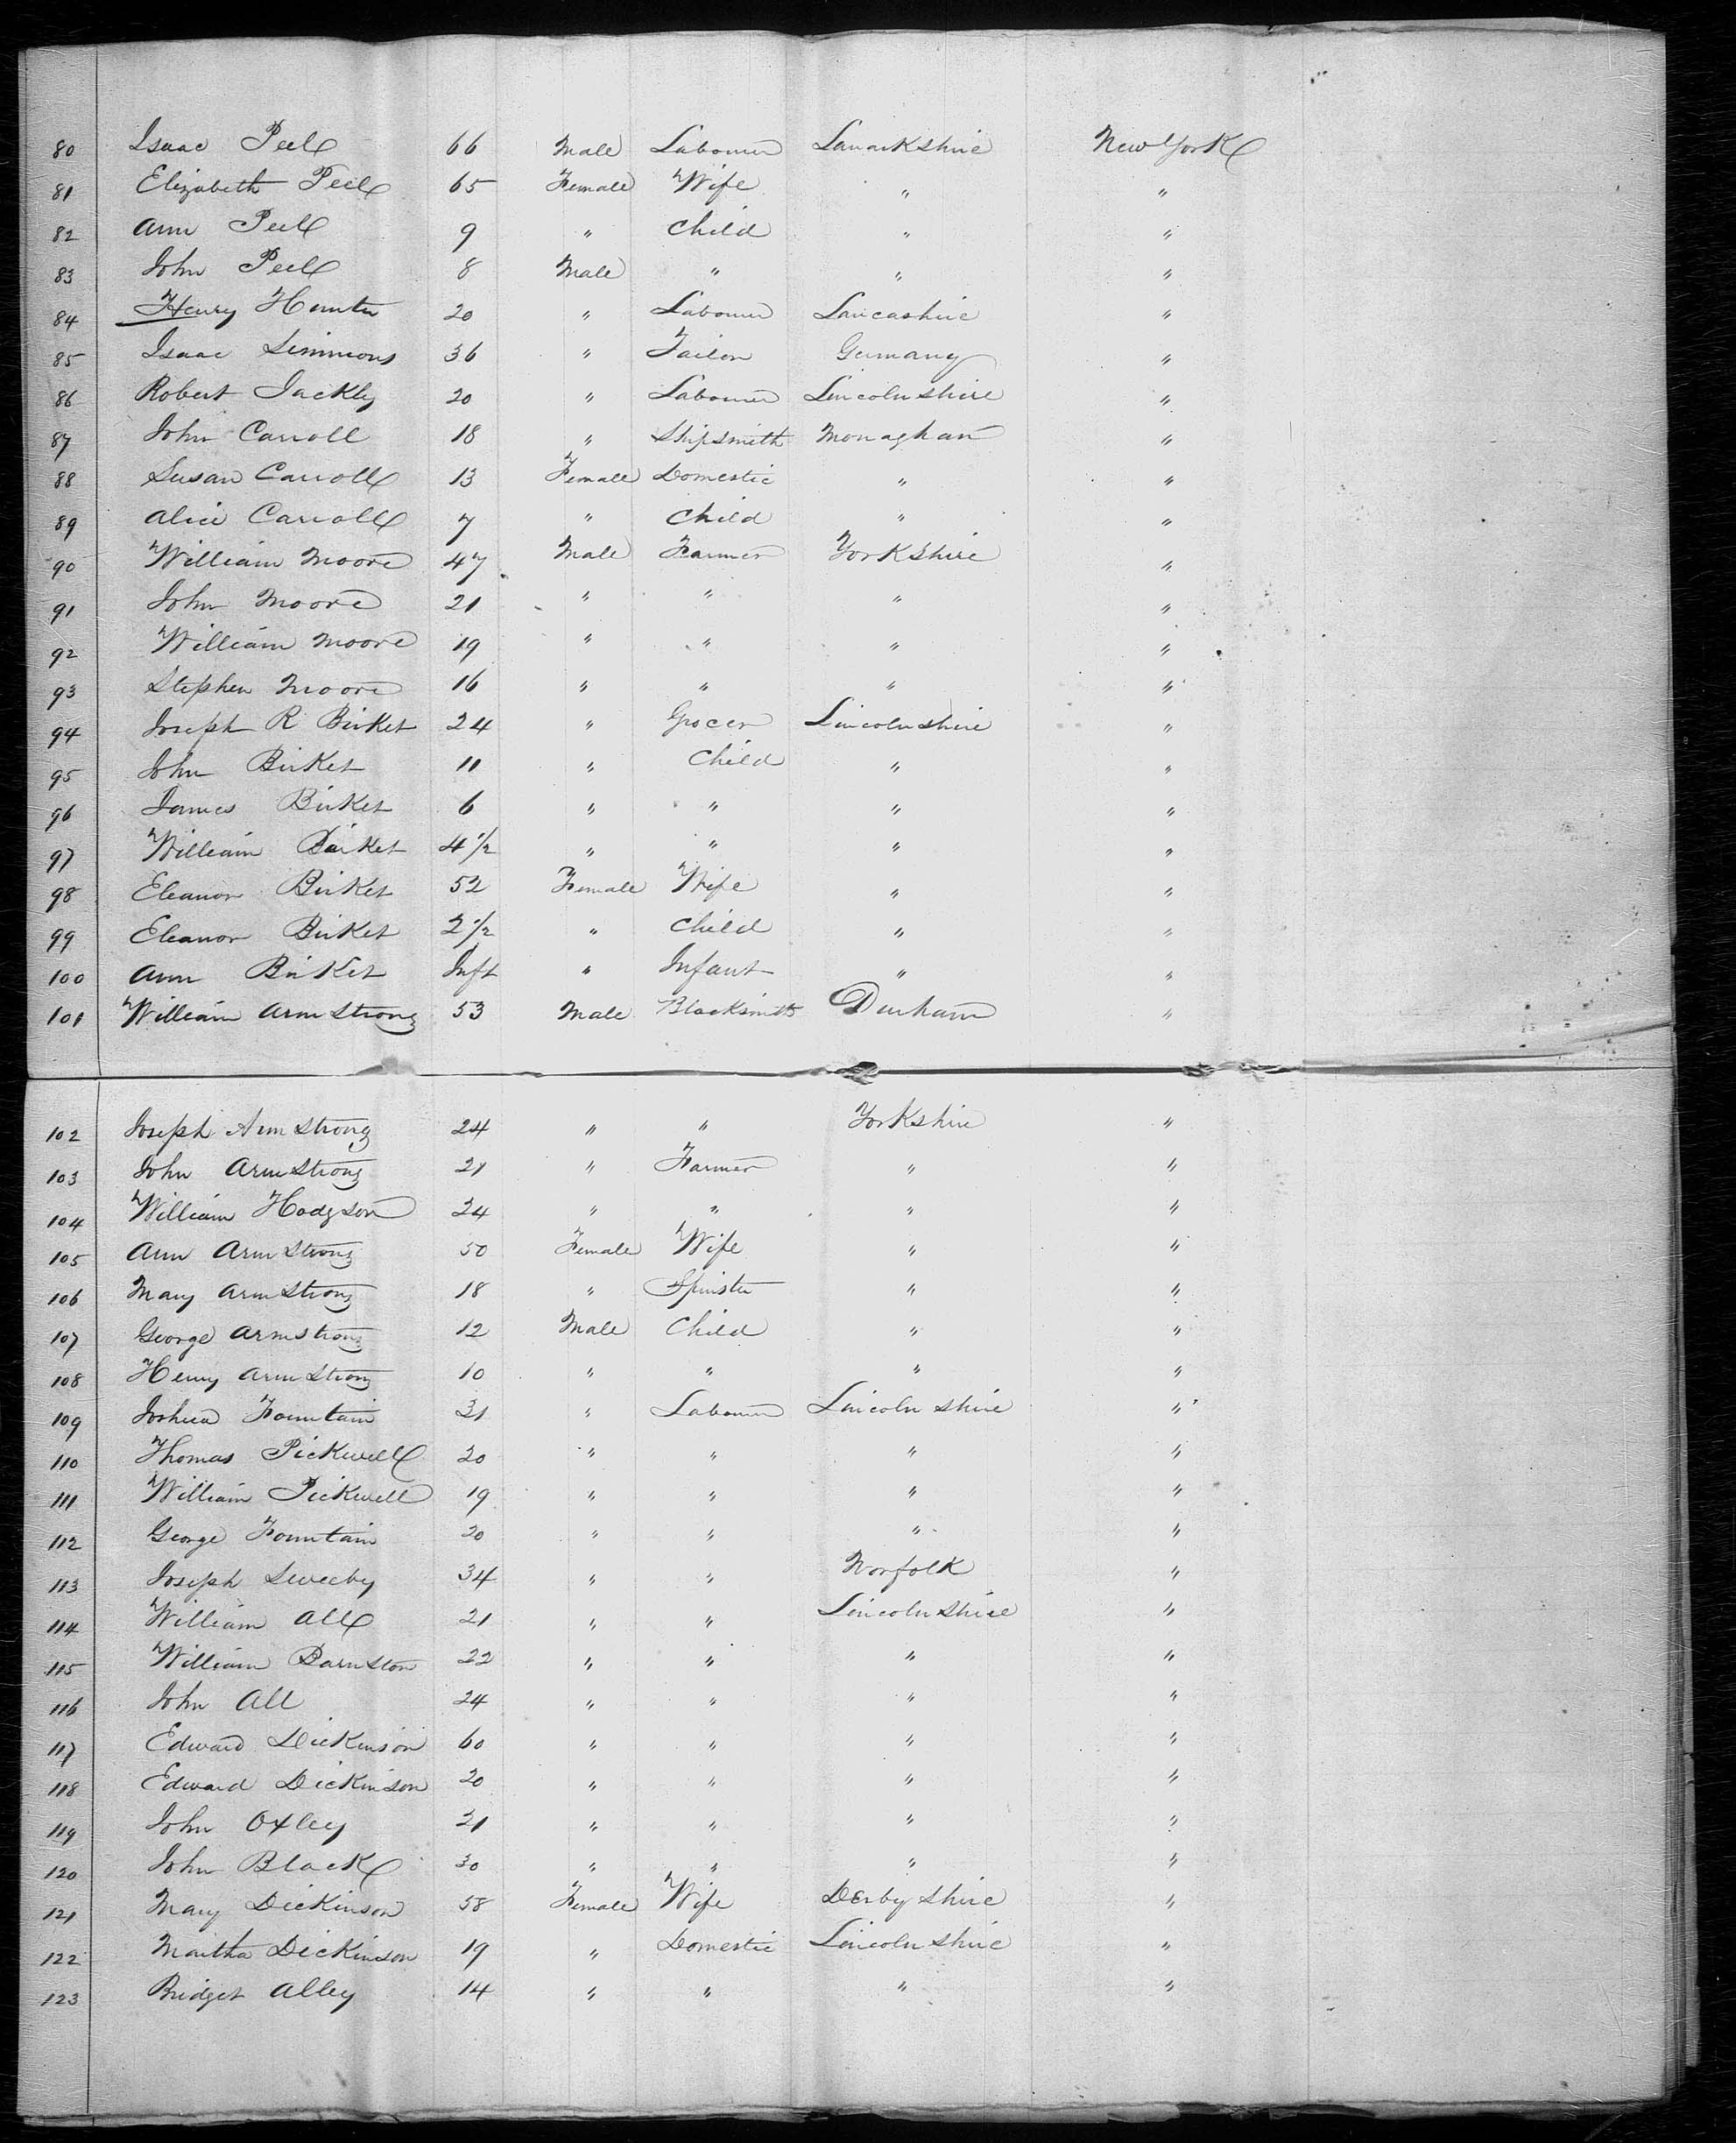 80 Isaac Peel 66 Male Labourer Lanarkshire New York
81 Elizabeth Peel 65 Female Wife " "
82 Ann Peel 9 " Child " "
83 John Peel 8 Male " " "
84 Henry Hunter 20 " Labourer Lancashire "
85 Isaac Simmons 36 " Tailor Germany "
86 Robert Jackley 20 " Labourer Lincolnshire "
87 John Carroll 18 " Shipsmith Monaghan "
88 Susan Carroll 13 Female Domestic " "
89 Alice Carroll 7 " Child " "
90 William Moore 47 Male Farmer Yorkshire "
91 John Moore 21 " " " "
92 William Moore 19 " " " "
93 Stephen Moore 16 " " " "
94 Joseph R Birket 24 " Grocer Lincolnshire "
95 John Birket 11 " Child " "
96 James Birket 6 " " " "
97 William Birket 4 1/2 " " " "
98 Eleanor Birket 52 Female Wife " "
99 Eleanor Birket 2 1/2 " Child " "
100 Ann Birket Inft " Infant " "
101 William Armstrong 53 Male Blacksmith Durham "
102 Joseph Armstrong 24 " " Yorkshire "
103 John Armstrong 21 " Farmer " "
104 William Hodgson 24 " " " "
105 Ann Armstrong 50 Female Wife " "
106 Mary Armstrong 18 " Spinster " "
107 George Armstrong 12 Male Child " "
108 Henry Armstrong 10 " " " "
109 Joshua Fountain 31 " Labourer Lincolnshire "
110 Thomas Pickwell 20 " " " "
111 William Pickwell 19 " " " "
112 George Fountain 20 " " " "
113 Joseph Sweeby 34 " " Norfolk "
114 William All 21 " " Lincolnshire "
115 William Barnston 22 " " " "
116 John All 24 " " " "
117 Edward Dickinson 60 " " " "
118 Edward Dickinson 20 " " " "
119 John Oxley 21 " " " "
120 John Black 30 " " " "
121 Mary Dickinson 58 Female Wife Derbyshire "
122 Martha Dickinson 19 " Domestic Lincolnshire "
123 Bridget Alley 14 " " " "